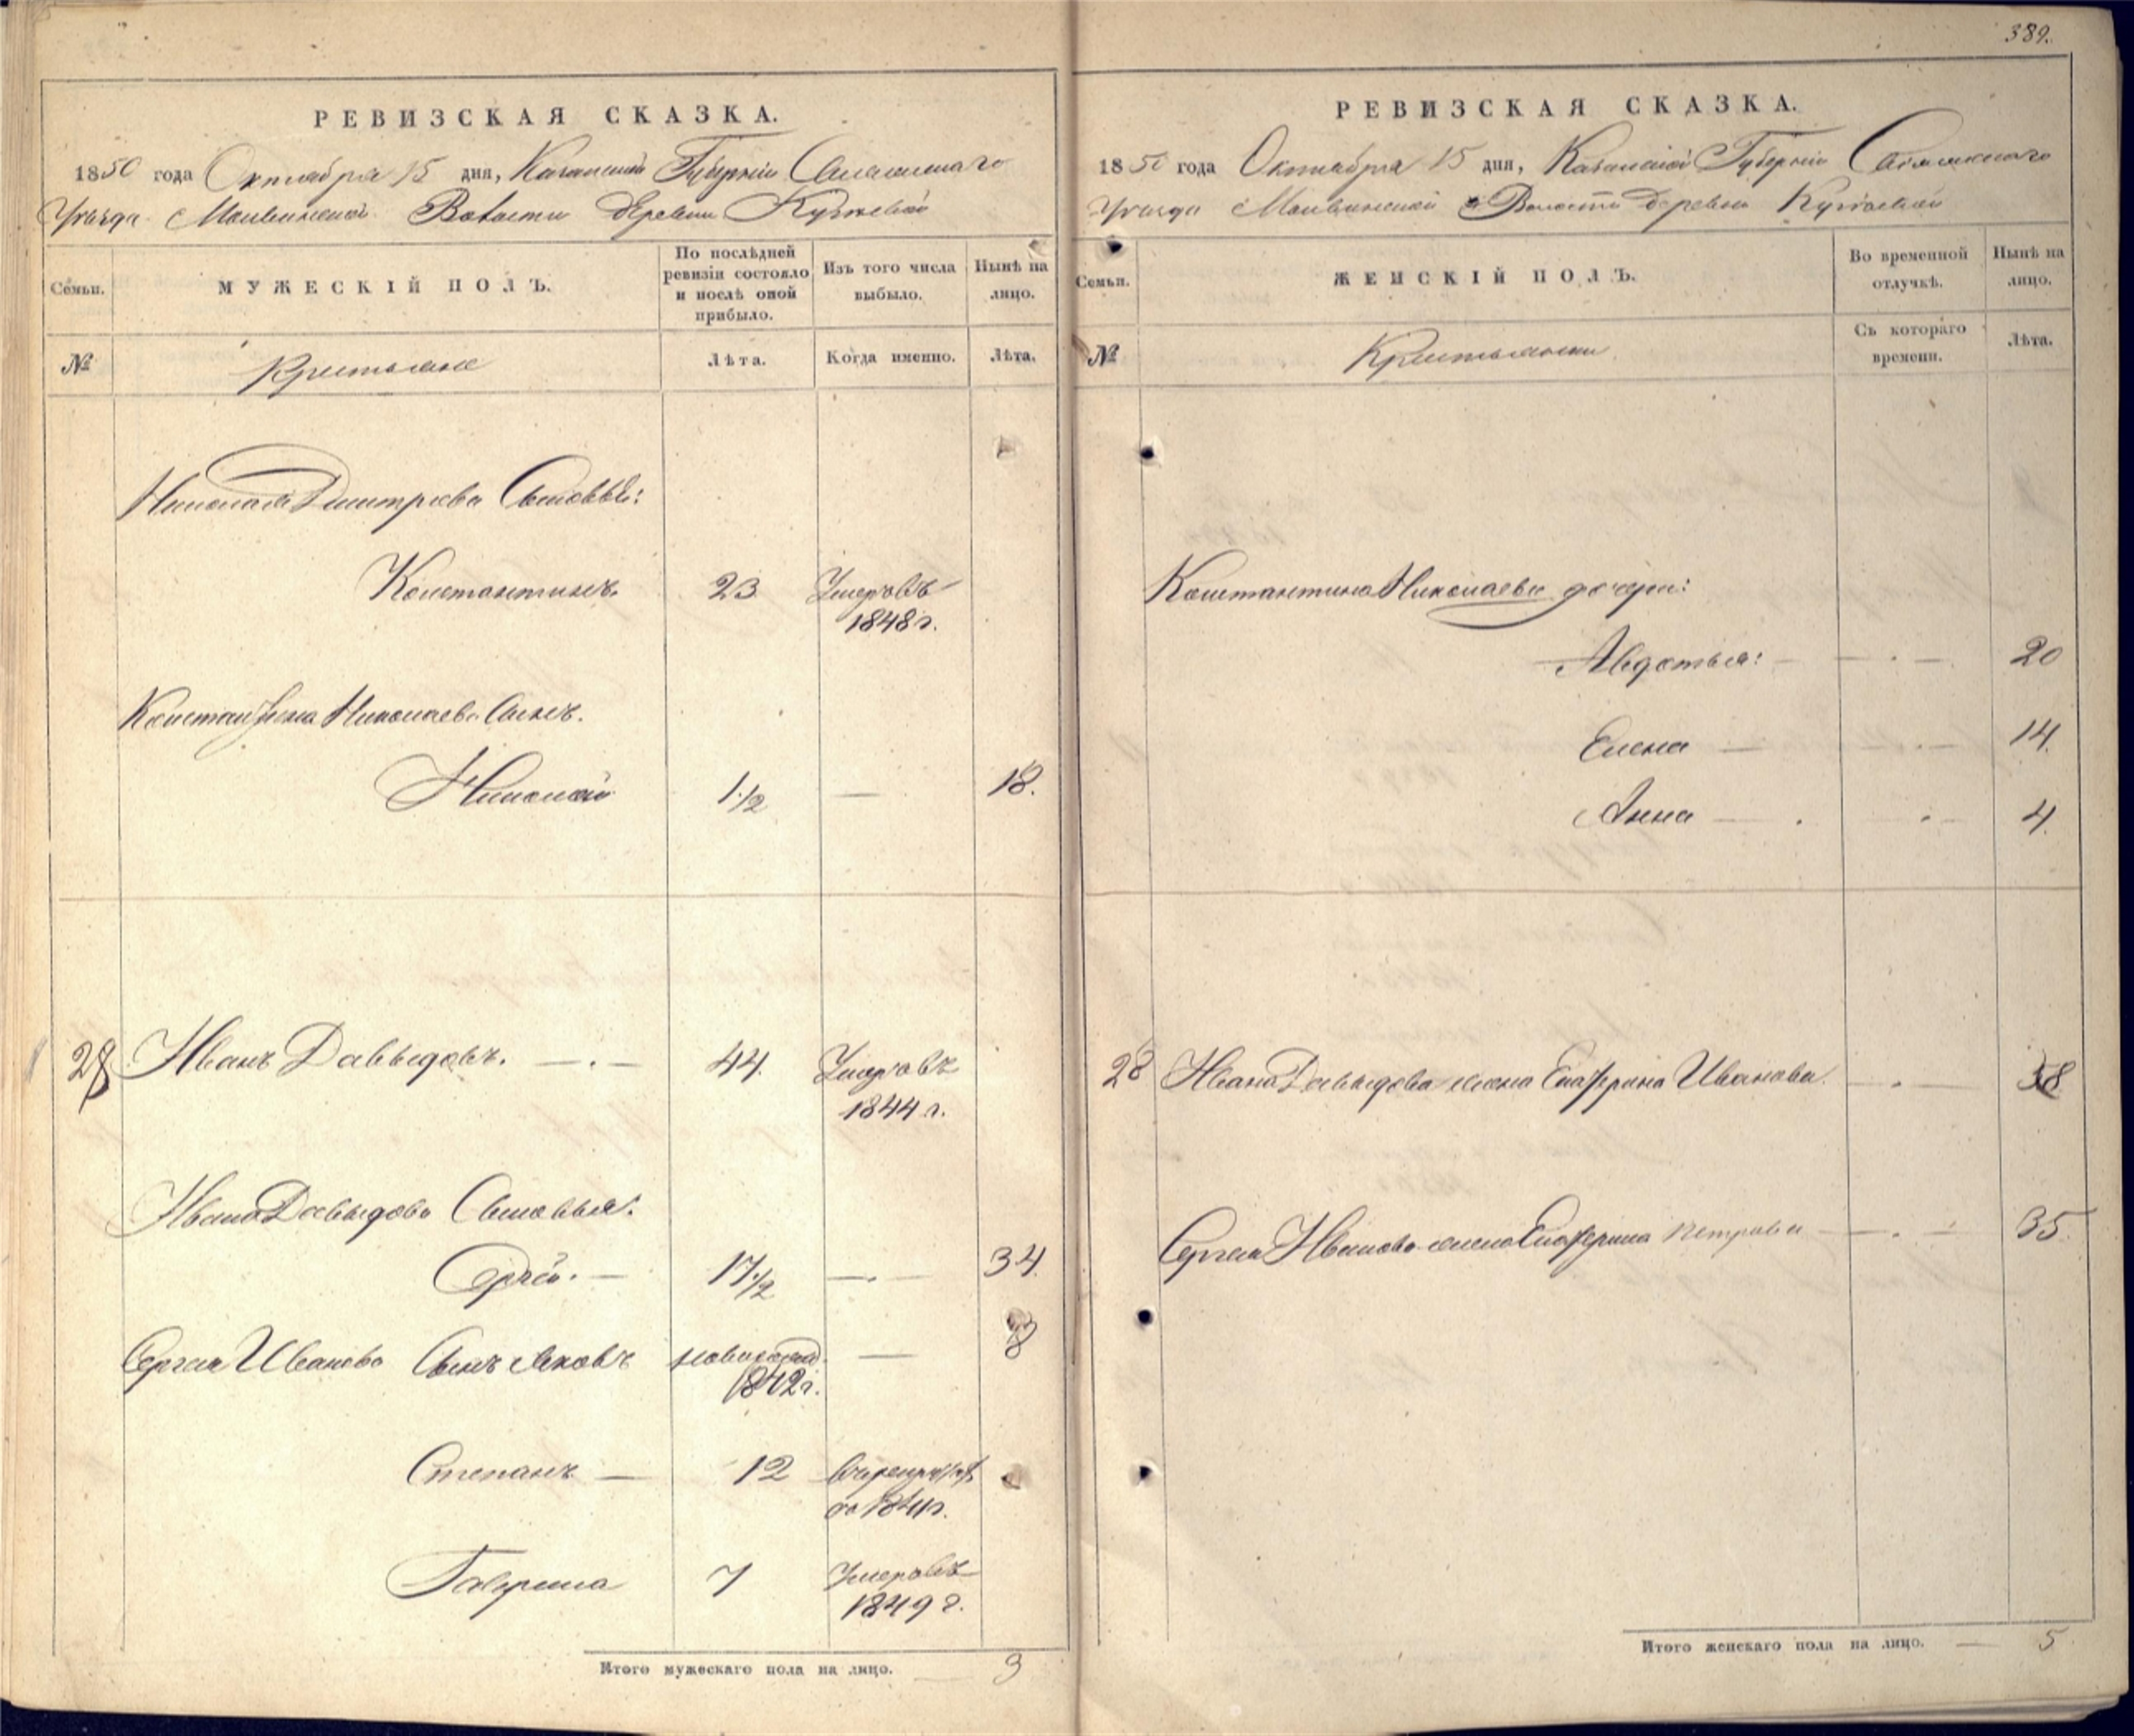 389.
РЕВИЗСКАЯ СКАЗКА.
1850 года Октября 15 дня, Казанской Губерніи Спасскаго
Уѣзда Волости Деревни
Семьи.
МУЖЕСКІЙ ПОЛЪ.
По послѣдней ревизіи состояло и послѣ оной прибыло.
Изъ того числа выбыло.
Нынѣ на лицо.
№
Крестьяне
Лѣта.
Когда именно.
Лѣта.
Николая Дмитріева Сыновья:
Константинъ. 23 Умеръ въ
1848 г.
Константина Николаева Сынъ.
Николай 1 1/2 — 18.
28 Иванъ Давыдовъ. 44. Умеръ въ
1844 г.
Ивана Давыдова Сыновья:
Сергѣй. 17 1/2 — 34.
Сергея Иванова Сынъ Яковъ новорожд. — 8
1842 г.
Степанъ — 12
1841 г.
Гаврила 7 Умеръ въ
1849 г.
Итого мужескаго пола на лицо. 3
РЕВИЗСКАЯ СКАЗКА.
1850 года Октября 15 дня, Казанской Губерніи Спасскаго
Уѣзда Волости Деревни
Семьи.
ЖЕНСКІЙ ПОЛЪ.
Во временной отлучкѣ.
Нынѣ на лицо.
№
Крестьянки
Съ котораго времени.
Лѣта.
Константина Николаева дочери:
Авдотья: 20
Елена — 14.
Анна — 4.
28 Ивана Давыдова жена Екатерина Иванова. 58
Сергея Иванова жена Екатерина Петрова — 35.
Итого женскаго пола на лицо. — 5